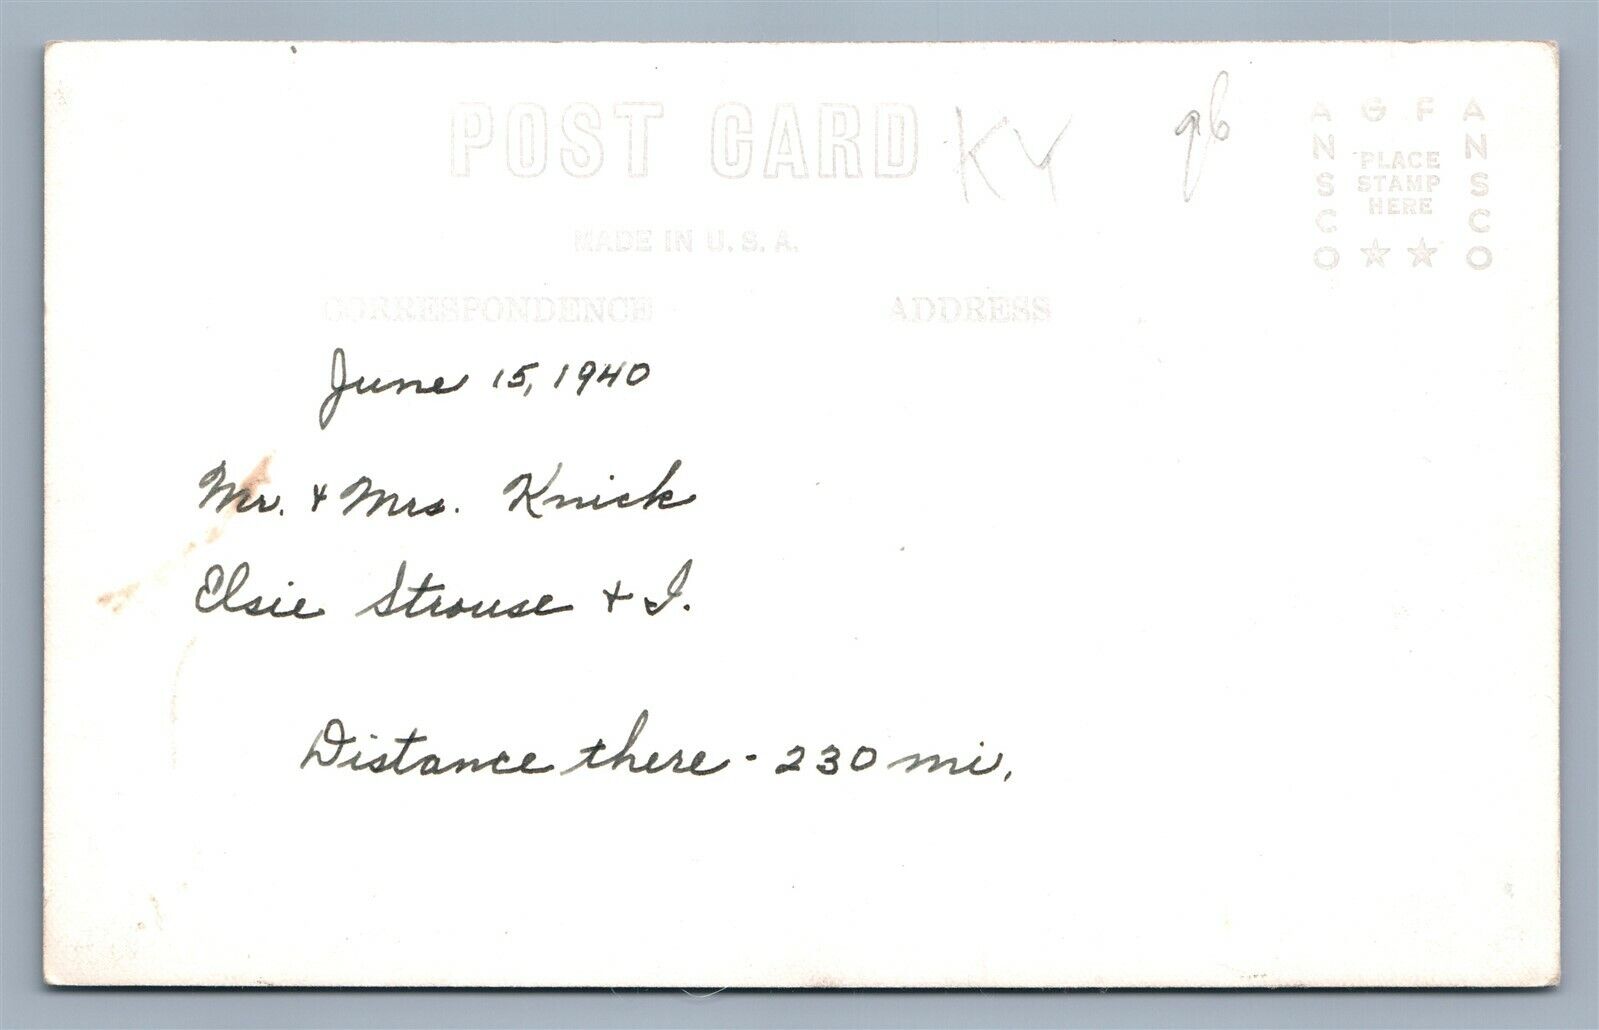 POST CARD KY
MADE IN U.S.A.
CORRESPONDENCE ADDRESS
A G F A
ANSCO ANSCO
PLACE
STAMP
HERE
June 15, 1940
Mr. + Mrs. Knick
Elsie Strouse + I.
Distance there - 230 mi.